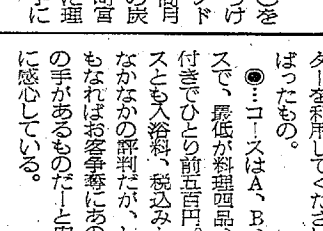 〇を
つけ
ンド
間月
の炭
商宮
に理
手に
ターを利用してくださ
ばったもの。
◉…コースはA、B、
スで、最低が料理四品
付きでひとり前五百円。
スとも入浴料、税込み
なかなかの評判だが、
もなればお客争奪にあの
の手があるものだーと
に感心している。